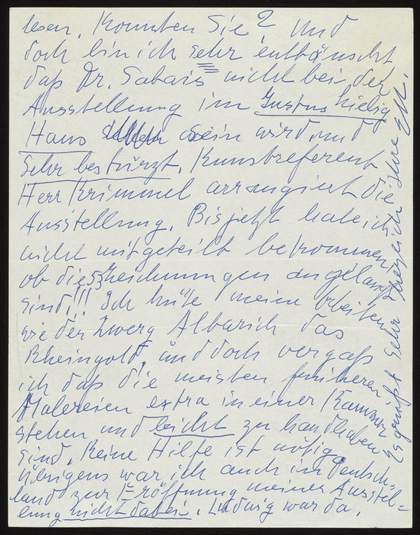 lesen. Konnten Sie? Und
doch bin ich sehr enttäuscht
daß Dr. Sabais nicht bei der
Ausstellung im Justus Liebig
Haus sein wird, und
sehr bestürzt. Kunstreferent
Herr Krimmel arrangiert die
Ausstellung. Bis jetzt habe ich
nicht mitgeteilt bekommen
ob die Zeichnungen angelangt
sind!!! Ich hüte meine Arbeiten
wie der Zwerg Albarich das
Rheingold, und doch vergaß
ich daß die meisten früheren
Malereien extra in einer Kammer
stehen und leicht zu handhaben
sind. Keine Hilfe ist nötig.
Übrigens war ich auch in Deutsch-
land zur Eröffnung meiner Ausstel-
lung nicht dabei. Ludwig war da.
Es grüßt Sehr herzlich Ihre